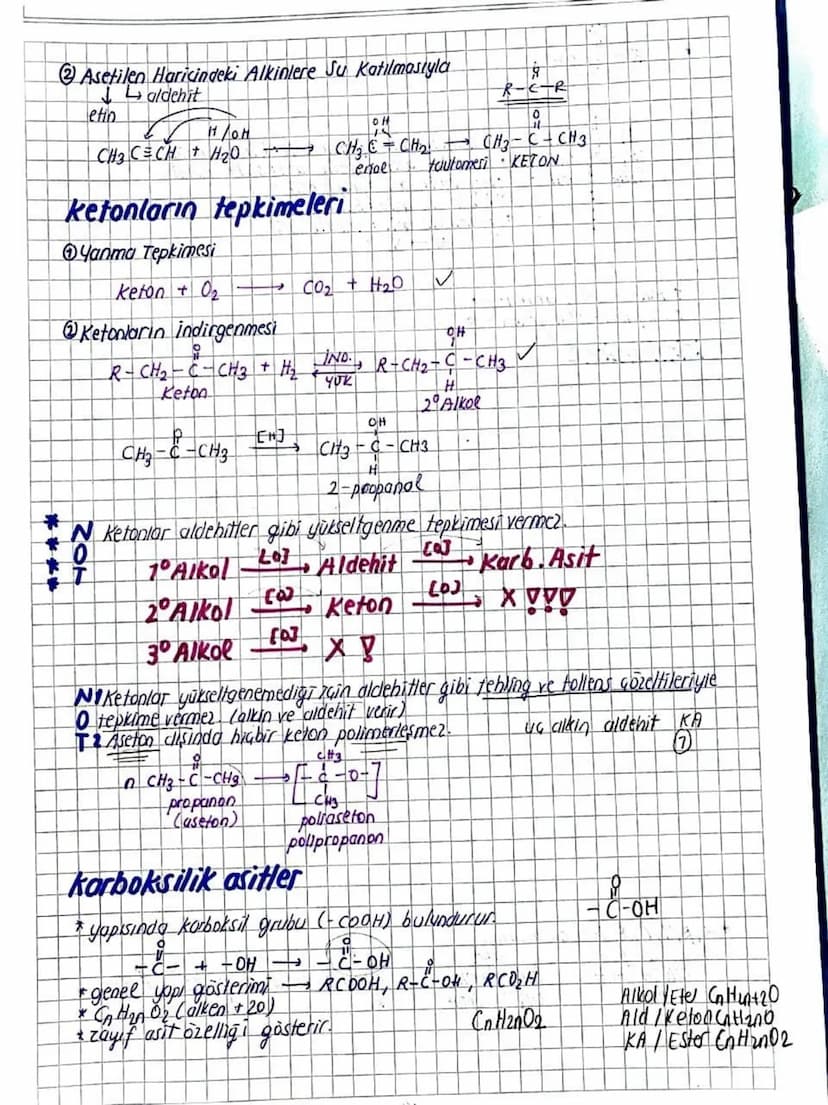 ② Asetilen Haricindeki Alkinlere Su Katılmasıyla
O
R-C-R
↓ ↳ aldehit
etin
H / OH
OH
O
CH3 C≡CH + H2O → CH3 C = CH2 → CH3 - C - CH3
enol tautomeri · KETON
Ketonların tepkimeleri
① Yanma Tepkimesi
Keton + O2 → CO2 + H2O ✓
② Ketonların indirgenmesi
O
OH
R - CH2 - C - CH3 + H2 İND. YÜK R-CH2- C -CH3 ✓
Keton
H
2° Alkol
O
OH
CH3 - C - CH3 [H] → CH3 - C - CH3
H
2-propanol
**** NOT Ketonlar aldehitler gibi yükseltgenme tepkimesi vermez.
1° Alkol [O] → Aldehit [O] → Karb. Asit
2° Alkol [O] → Keton [O] → X !!!
3° Alkol [O] → X !
NOT 1 Ketonlar yükseltgenemediği için aldehitler gibi fehling ve tollens çözeltileriyle
tepkime vermez. (alkin ve aldehit verir)
uç alkin aldehit KA
2 Aseton dışında hiçbir keton polimerleşmez.
⑦
O
CH3
n CH3 - C - CH3 → [- C - O -]
CH3
propanon
(aseton)
poliaseton
polipropanon
Karboksilik asitler
O
- C - OH
* yapısında karboksil grubu (-COOH) bulundurur.
O
O
- C - + -OH → - C - OH
O
* genel yapı gösterimi → RCOOH, R-C-OH, RCO2H
* CnH2nO2 (alken +2O)
CnH2nO2
* zayıf asit özelliği gösterir.
Alkol / Eter CnH2n+2O
Ald / Keton CnH2nO
KA / Ester CnH2nO2